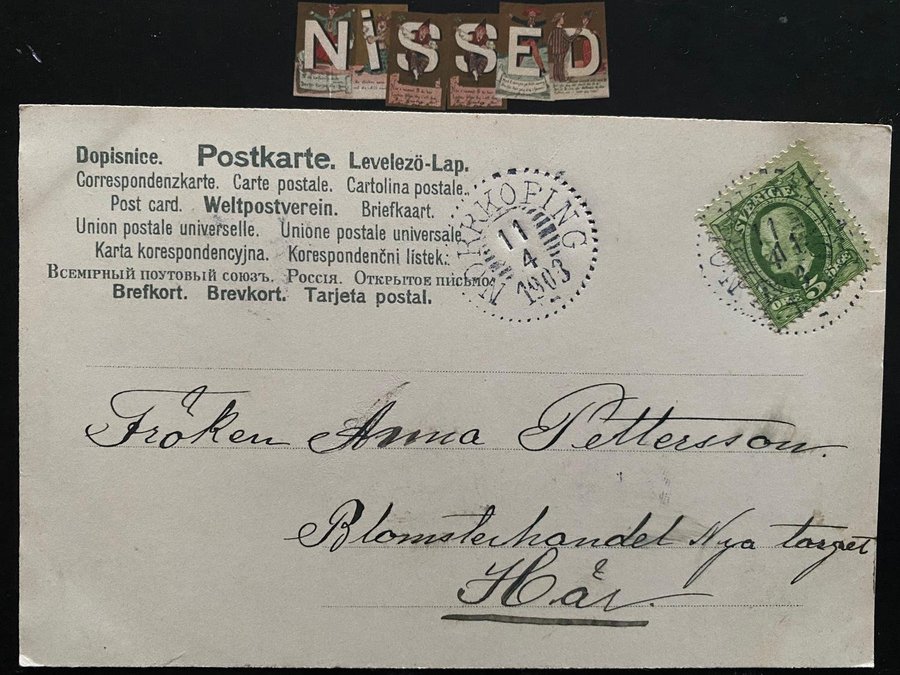 NiSSED
Dopisnice. Postkarte. Levelezö-Lap.
Correspondenzkarte. Carte postale. Cartolina postale.
Post card. Weltpostverein. Briefkaart.
Union postale universelle. Unione postale universale.
Karta korespondencyjna. Korespondenční lístek:
Всемірный поутовый союзъ. Россія. Открытое письмо.
Brefkort. Brevkort. Tarjeta postal.
NORRKÖPING
11
4
1903
SVERIGE
5
Fröken Anna Pettersson.
Blomsterhandel Nya torget
Här.